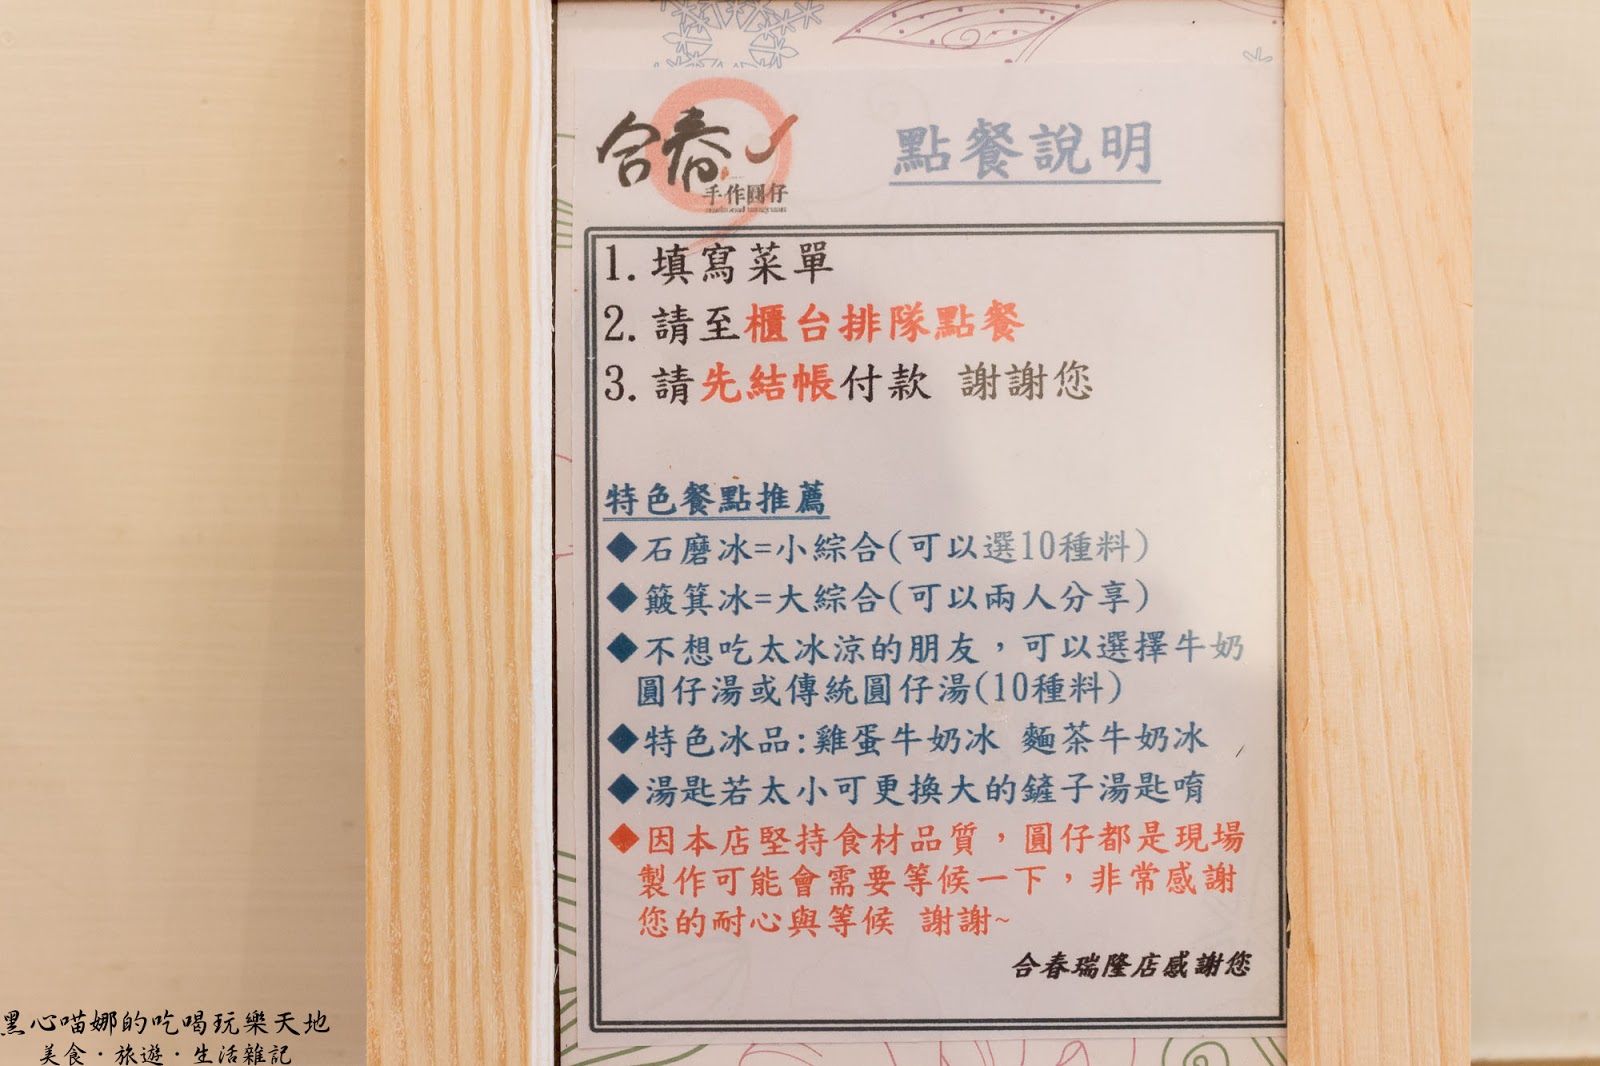 合春
手作圓仔
點餐說明
1.填寫菜單
2.請至櫃台排隊點餐
3.請先結帳付款 謝謝您
特色餐點推薦
◆石磨冰=小綜合(可以選10種料)
◆簸箕冰=大綜合(可以兩人分享)
◆不想吃太冰涼的朋友，可以選擇牛奶
圓仔湯或傳統圓仔湯(10種料)
◆特色冰品:雞蛋牛奶冰 麵茶牛奶冰
◆湯匙若太小可更換大的鏟子湯匙唷
◆因本店堅持食材品質，圓仔都是現場
製作可能會需要等候一下，非常感謝
您的耐心與等候 謝謝~
合春瑞隆店感謝您
黑心喵娜的吃喝玩樂天地
美食·旅遊·生活雜記